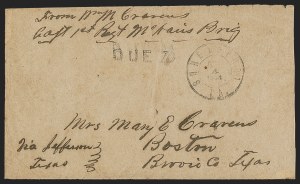 From Wm M Cravens
Capt 1st Regt McNairs Brig
DUE
Mrs Mary E Cravens
Via Jefferson
Boston
Texas
Bowie Co Texas